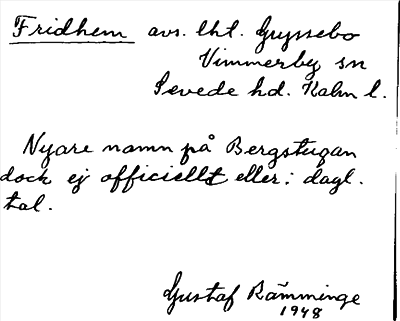 Fridhem avs. lht. Gryssebo
Vimmerby sn
Sevede hd. Kalm l.
Nyare namn på Bergstugan
dock ej officiellt eller i dagl.
tal.
Gustaf Rämminge
1948